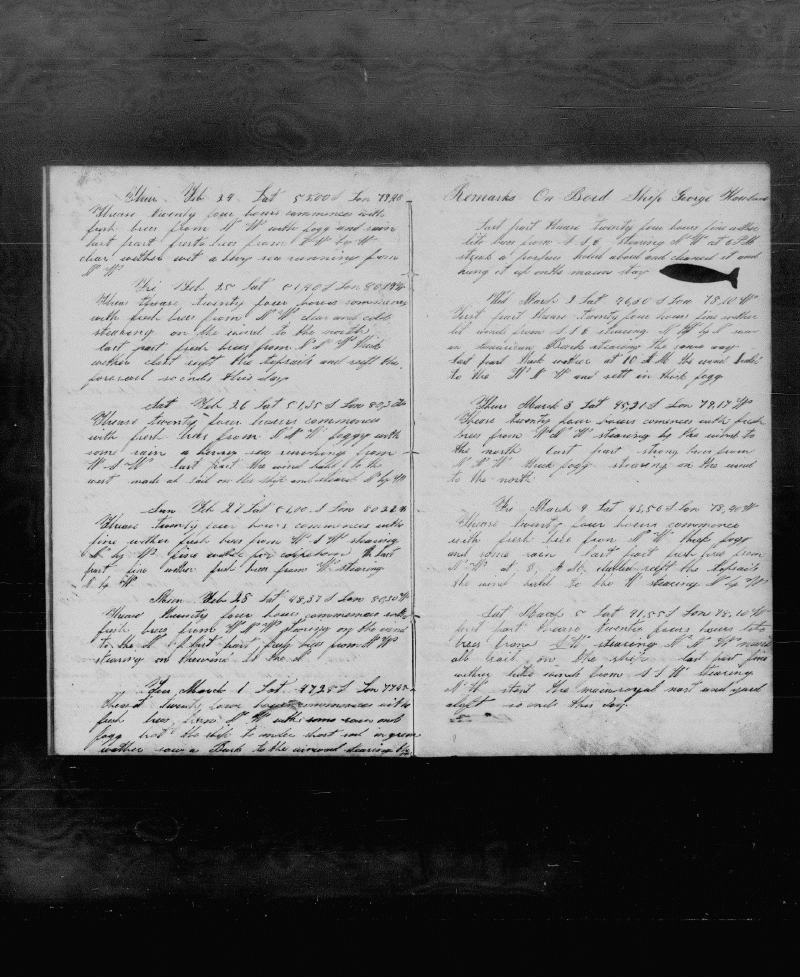 Thur Feb 24 Lat 53,00 S Lon 79,40
Thease twenty four hours commences with
fresh brees from N W with fogg and rain
last part fresh brees from N W by W
clear wether wit a heavy sea running from
N W
Fri Feb 25 Lat 51,40 S Lon
Thease twenty four hours commences
with fresh brees from N W clear and cold
stearing on the wind to the north
last part fresh brees from N N W thick
wether reeft the topsails and reeft the
foresail so ends this day
Sat Feb 26 Lat 51,35 S Lon
Thease twenty four hours commences
with fresh brees from N N W foggy with
som rain a heavy sea running from
W S W last part the wind to the
west made all sail on the ship and steared N by W
Sun Feb 27 Lat Lon 80,22 W
Thease twenty four hours commences with
fine wether fresh brees from W S W stearing
N by W the last
part fine wether fresh brees from W stearing
N by W
Mon Feb 28 Lat 48,57 S Lon 80,30 W
Thease twenty four hours commences with
fresh brees from W N W stearing on the wind
to the N last part fresh brees from N W
stearing on the wind to the N
Tues March 1 Lat 47,28 S Lon
Thease twenty four hours commences with
fresh brees from N W with some rain and
fogg the ship to under short sail in green
wather saw a Bark to the winward stearing
Remarks On Bord Ship George Howland
Last part thease twenty four hours fine wether
lite brees from S S E stearing N W at 6 P M
struck a porpus hold abord and cleaned it and
hung it up on the main stay
Wed March 2 Lat 46,30 S Lon 78,10 W
First part thease twenty four hours fine wether
lit winds from S S E stearing N W by N saw
an American Bark stearing the same way
last part thick wether at 10 A M the wind
to the W N W and sett in thick fogg
Thurs March 3 Lat 45,21 S Lon 79,17 W
Thease twenty four hours comences with fresh
brees from W N W stearing by the wind to
the north last part strong brees from
N N W thick fogg stearing on the wind
to the north
Fri March 4 Lat 43,50 S Lon 78,40 W
Thease twenty four hours commence
with fresh brees from N W thick fogg
and some rain last part fresh brees from
N W at 8, A M reeft the topsails
the wind to the W stearing N by W
Sat March 5 Lat 41,55 S Lon 78,10 W
first part thease twenty fours hours lite
brees from S W stearing N N W maid
all sail on the ship last part fine
wether lite winds from S S W stearing
N W sent the mainroyal mast and yard
aloft so ends this day